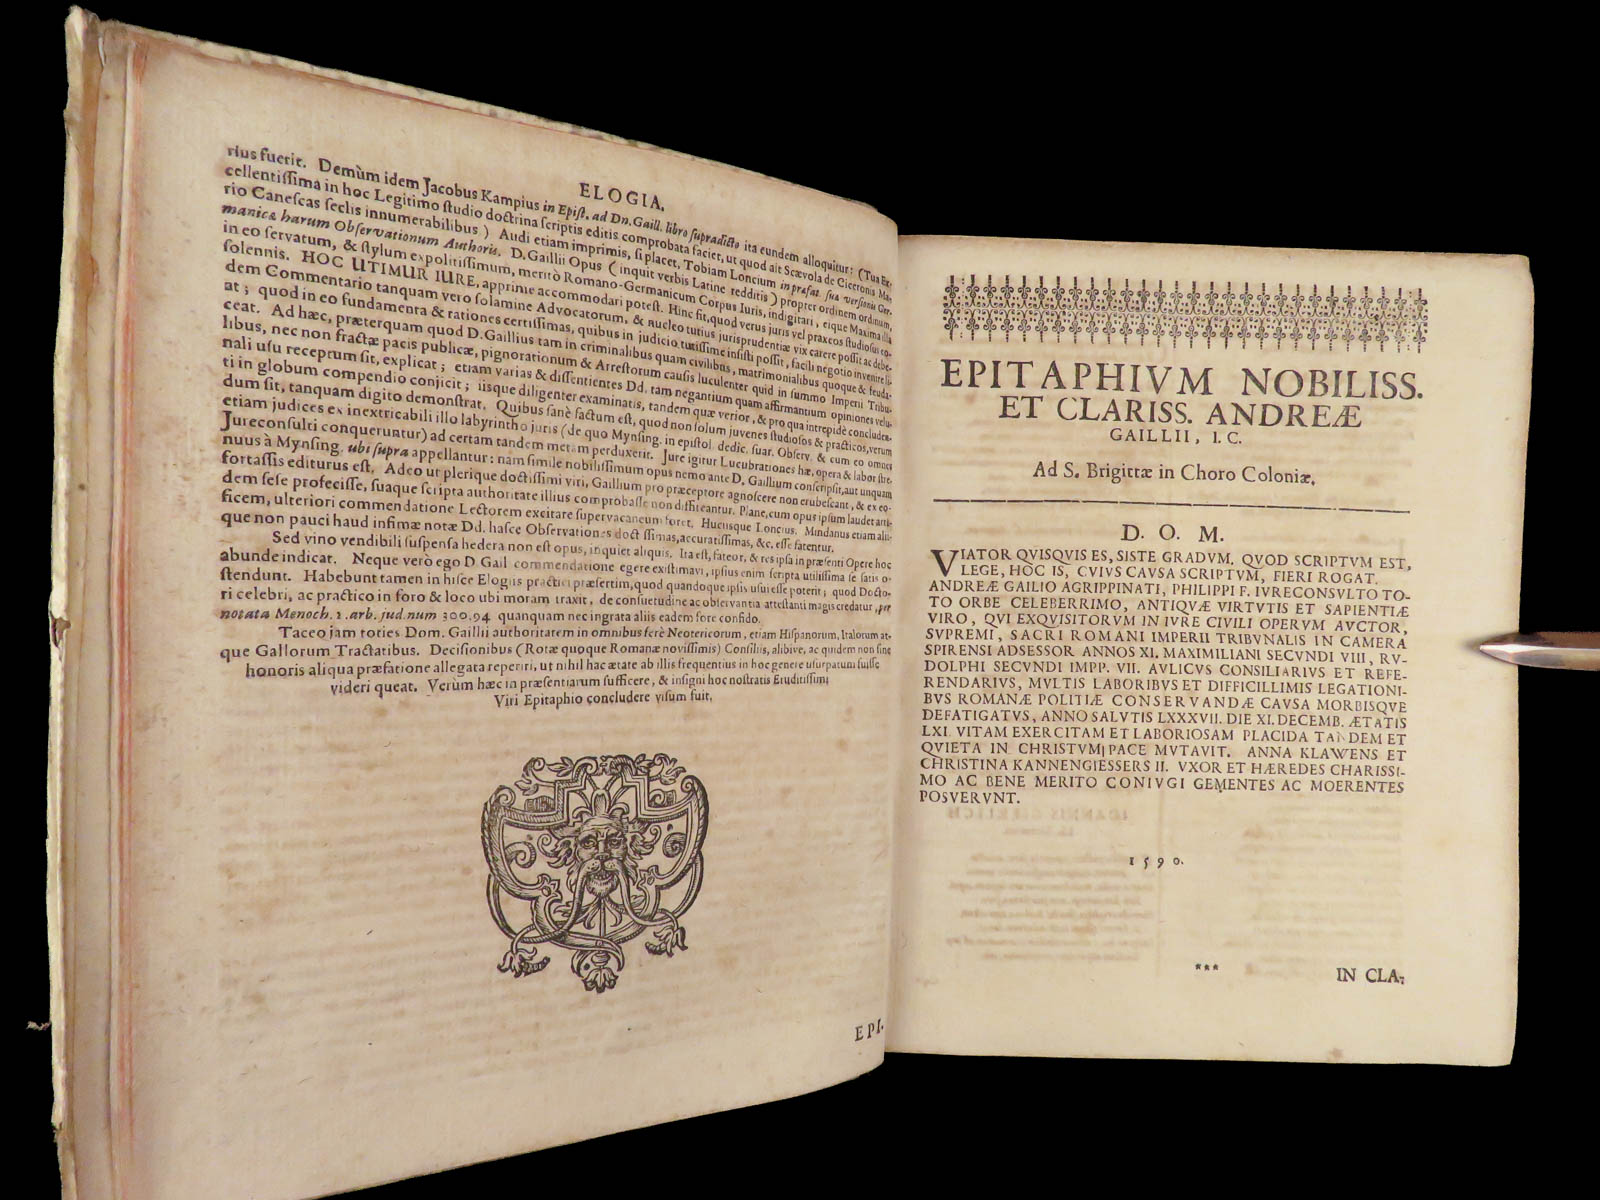 ELOGIA.
rius fuerit. Demùm idem Jacobus Kampius in Epist. ad Dn. Gaill. libro supradicto ita eundem alloquitur: (Tua Ex-
cellentissima in hoc Legitimo studio doctrina scriptis editis comprobata faciet, ut quod ait Scævola de Ciceronis Ma-
rio Canescas seclis innumerabilibus) Audi etiam imprimis, si placet, Tobiam Loncium in præfat. suæ versionis Ger-
manicæ harum Observationum Authoris. D. Gaillii Opus (inquit verbis Latine redditis) propter ordinem ordinum,
in eo servatum, & stylum expolitissimum, meritò Romano-Germanicum Corpus Iuris, indigitari, eique Maxima illa
solennis. HOC UTIMUR IURE, apprime accommodari potest. Hinc fit, quod verus juris vel praxeos studiosus eo-
dem Commentario tanquam vero solamine Advocatorum, & nucleo tutius jurisprudentiæ vix carere possit ac debe-
at; quod in eo fundamenta & rationes certissimas, quibus in judicio tutissime insisti possit, facili negotio invenire li-
ceat. Ad hæc, præterquam quod D. Gaillius tam in criminalibus quam civilibus, matrimonialibus quoque & feuda-
libus, nec non fractæ pacis publicæ, pignorationum & Arrestorum causis luculenter quid in summo Imperii Tribu-
nali usu receptum sit, explicat; etiam varias & dissentientes Dd. tam negantium quam affirmantium opiniones velu-
ti in globum compendio conjicit; iisque diligenter examinatis, tandem quæ verior, & pro qua intrepidè concluden-
dum sit, tanquam digito demonstrat. Quibus sanè factum est, quod non solum juvenes studiosos & practicos, verum
etiam judices ex inextricabili illo labyrintho juris (de quo Mynsing. in epistol. dedic. suar. Observ. & cum eo omnes
Jureconsulti conqueruntur) ad certam tandem metam perduxerit. Jure igitur Lucubrationes hæ, opera & labor stre-
nuus à Mynsing. ubi supra appellantur: nam simile nobilissimum opus nemo ante D. Gaillium conscripsit, aut unquam
fortassis editurus est. Adeo ut plerique doctissimi viri, Gaillium pro præceptore agnoscere non erubescant, & ex eo-
dem sese profecisse, suaque scripta authoritate illius comprobasse non diffiteantur. Plane, cum opus ipsum laudet arti-
ficem, ulteriori commendatione Lectorem excitare supervacaneum foret. Hucusque Loncius. Mindanus etiam alii-
que non pauci haud infimæ notæ Dd. hasce Observationes doctissimas, accuratissimas, &c. esse fatentur.
Sed vino vendibili suspensa hedera non est opus, inquiet aliquis. Ita est, fateor, & res ipsa in præsenti Opere hoc
abunde indicat. Neque verò ego D. Gail commendatione egere existimavi, ipsius enim scripta utilissima se satis o-
stendunt. Habebunt tamen in hisce Elogiis practici præsertim, quod quandoque ipsis usui esse poterit; quod Docto-
ri celebri, ac practico in foro & loco ubi moram traxit, de consuetudine ac observantia attestanti magis credatur, per
notata Menoch. 2. arb. jud. num 300.94 quanquam nec ingrata aliis eadem fore confido.
Taceo jam toties Dom. Gaillii authoritatem in omnibus ferè Neotericorum, etiam Hispanorum, Italorum at-
que Gallorum Tractatibus. Decisionibus (Rotæ quoque Romanæ novissimis) Consiliis, alibive, ac quidem non sine
honoris aliqua præfatione allegata reperiri, ut nihil hac ætate ab illis frequentius in hoc genere usurpatum fuisse
videri queat. Verùm hæc in præsentiarum sufficere, & insigni hoc nostratis Eruditissimi
Viri Epitaphio concludere visum fuit.
EPI-
EPITAPHIVM NOBILISS.
ET CLARISS. ANDREÆ
GAILLII, I. C.
Ad S. Brigittæ in Choro Coloniæ.
D. O. M.
VIATOR QVISQVIS ES, SISTE GRADVM. QVOD SCRIPTVM EST,
LEGE, HOC IS, CVIVS CAVSA SCRIPTVM, FIERI ROGAT.
ANDREÆ GAILIO AGRIPPINATI, PHILIPPI F. IVRECONSVLTO TO-
TO ORBE CELEBERRIMO, ANTIQVÆ VIRTVTIS ET SAPIENTIÆ
VIRO, QVI EXQVISITORVM IN IVRE CIVILI OPERVM AVCTOR,
SVPREMI, SACRI ROMANI IMPERII TRIBVNALIS IN CAMERA
SPIRENSI ADSESSOR ANNOS XI. MAXIMILIANI SECVNDI VIII, RV-
DOLPHI SECVNDI IMPP. VII. AVLICVS CONSILIARIVS ET REFE-
RENDARIVS, MVLTIS LABORIBVS ET DIFFICILLIMIS LEGATIONI-
BVS ROMANÆ POLITIÆ CONSERVANDÆ CAVSA MORBISQVE
DEFATIGATVS, ANNO SALVTIS LXXXVII. DIE XI. DECEMB. ÆTATIS
LXI. VITAM EXERCITAM ET LABORIOSAM PLACIDA TANDEM ET
QVIETA IN CHRISTVM PACE MVTAVIT. ANNA KLAWENS ET
CHRISTINA KANNENGIESSERS II. VXOR ET HÆREDES CHARISSI-
MO AC BENE MERITO CONIVGI GEMENTES AC MOERENTES
POSVERVNT.
1590.
***
IN CLA-